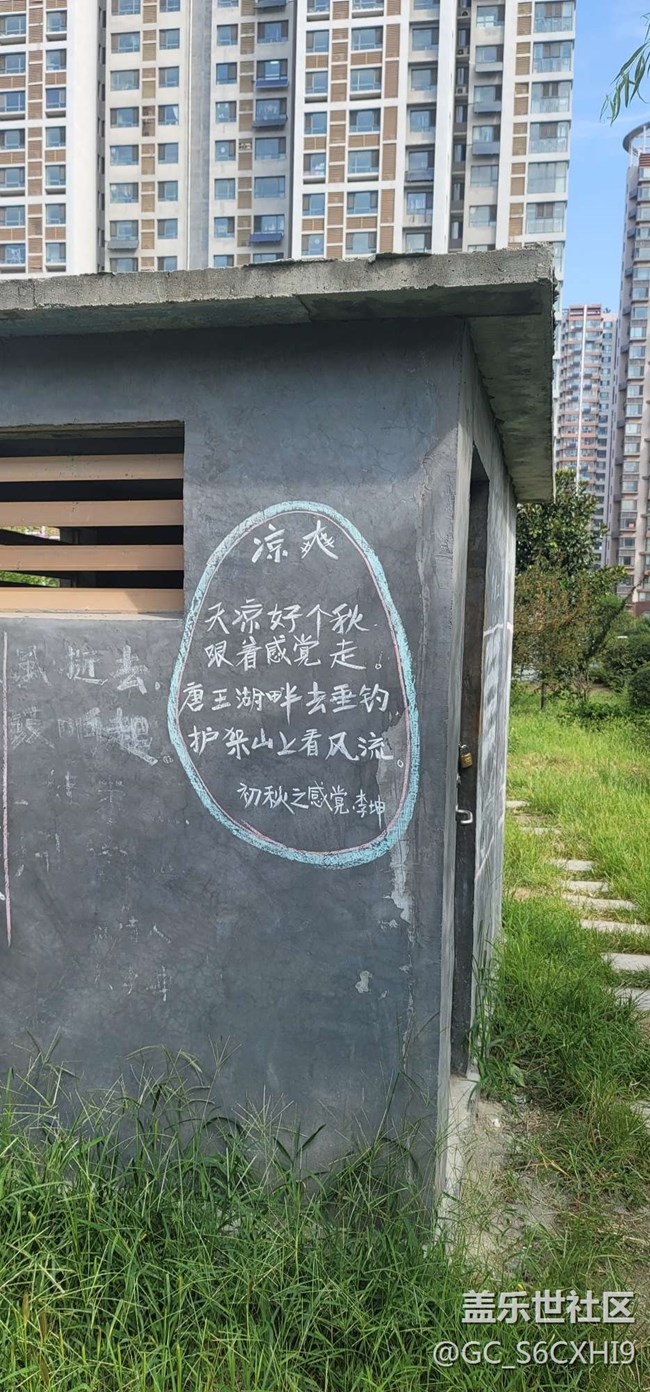 凉爽
天凉好个秋
跟着感觉走。
唐王湖畔去垂钓,
护架山上看风流。
初秋之感觉·李坤
逝去,
起。
盖乐世社区
@GC_S6CXHI9